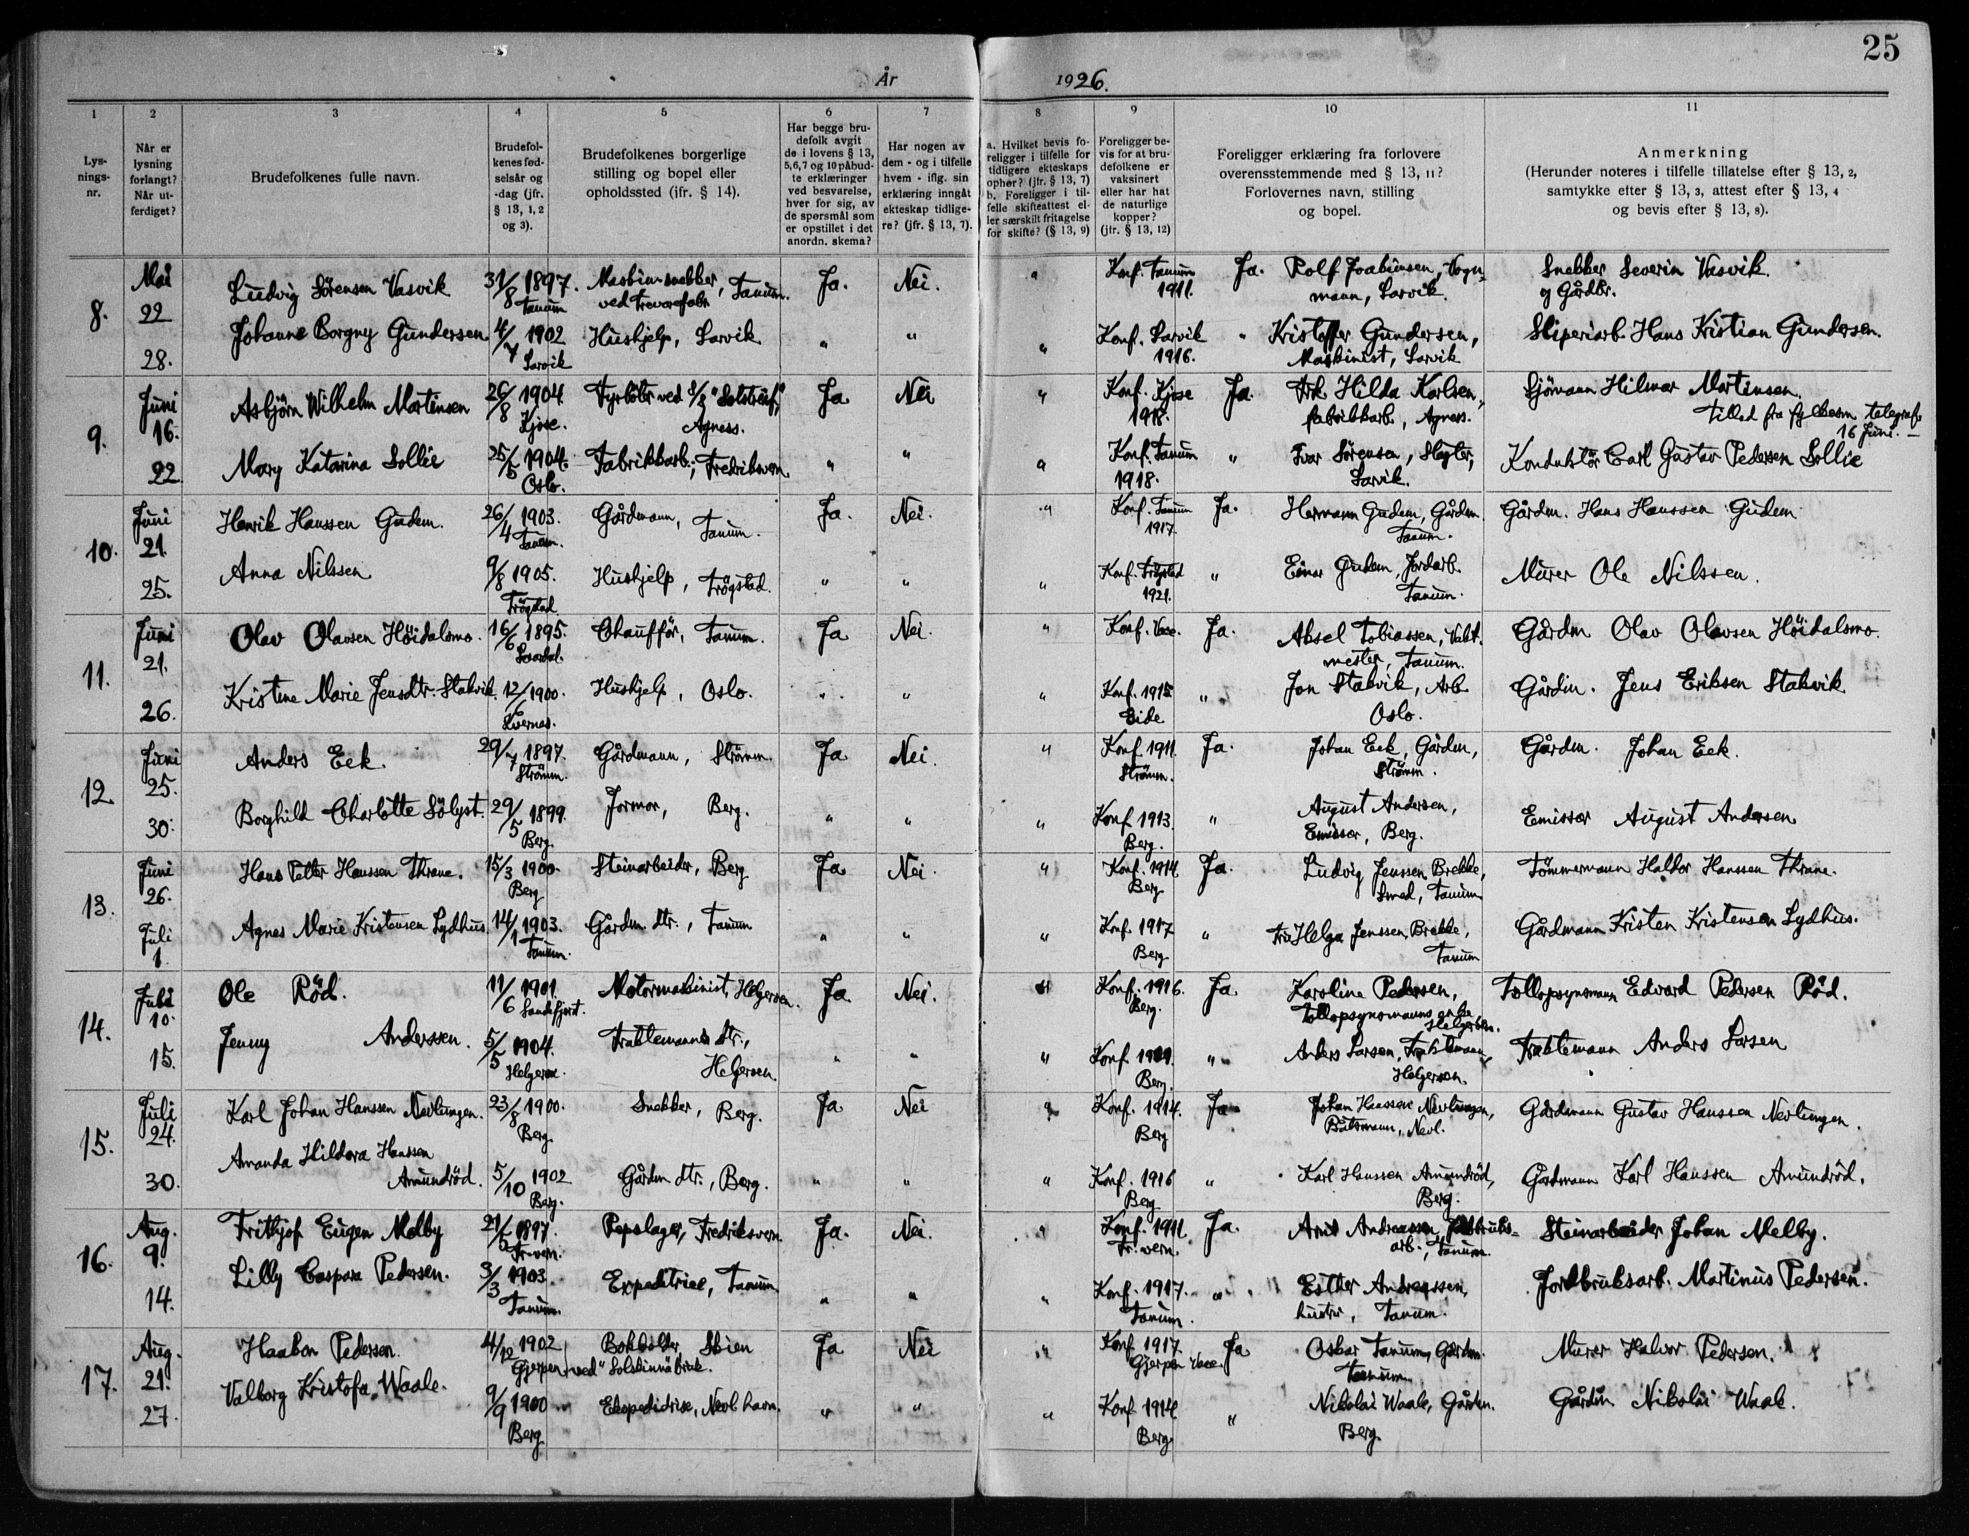 25
År 1926.
1 2 3 4 5 6 7 8 9 10 11
Lysningsnr.
Når er lysning forlangt? Når utferdiget?
Brudefolkenes fulle navn.
Brudefolkenes fødselsår og -dag (jfr. § 13, 1, 2 og 3).
Brudefolkenes borgerlige stilling og bopel eller opholdssted (jfr. § 14).
Har begge brudefolk avgit de i lovens § 13, 5,6,7 og 10 påbudte erklæringer ved besvarelse, hver for sig, av de spørsmål som er opstillet i det anordn. skema?
Har nogen av dem - og i tilfelle hvem - iflg. sin erklæring inngåt ekteskap tidligere? (jfr. § 13, 7).
a. Hvilket bevis foreligger i tilfelle for tidligere ekteskaps ophør? (jfr. § 13, 7)
b. Foreligger i tilfelle skifteattest eller særskilt fritagelse for skifte? (§ 13, 9)
Foreligger bevis for at brudefolkene er vaksinert eller har hat de naturlige kopper? (jfr. § 13, 12)
Foreligger erklæring fra forlovere overensstemmende med § 13, 11? Forlovernes navn, stilling og bopel.
Anmerkning (Herunder noteres i tilfelle tillatelse efter § 13, 2, samtykke efter § 13, 3, attest efter § 13, 4 og bevis efter § 13, 8).
8. Mai 22 Ludvig Sörensen Vasvik 31/8 1897. Tanum Maskinsnekker, ved Trevarefabr. Tanum. Ja. Nei. " Konf. Tanum 1911. Ja. Rolf Joakimsen, Vognmann, Larvik. Snekker Severin Vasvik. og Gårdbr.
28. Johanne Borgny Gundersen 4/7 1902 Larvik Hushjelp, Larvik " " " Konf. Larvik 1916. " Kristoffer Gundersen, Maskinist, Larvik Sliperiarb. Hans Kristian Gundersen.
9. Juni 16. Asbjörn Wilhelm Martinsen 26/8 1904 Kjose. Fyrböter ved S/S "Solstreif", Agness. Ja Nei " Konf. Kjose 1918. Ja. Frk Hilda Karlsen, fabrikkarb., Agness. Sjömann Hilmar Martinsen. Tillad fra fylkesm. telegraf. 16 Juni. —
22 Mary Katarina Sollie 25/5 1904. Oslo. Fabrikkarb., Fredriksvern " " " Konf. Tanum 1918. " Ivar Sörensen, Slagter, Larvik. Konduktör Carl Gustav Pedersen Sollie
10. Juni 21. Henrik Hanssen Gudem. 26/4 1903. Tanum. Gårdmann, Tanum. Ja. Nei. " Konf. Tanum 1917 Ja. Hermann Gudem, Gårdm. Tanum. Gårdm. Hans Hanssen Gudem
25. Anna Nilssen 9/8 1905. Trögstad. Hushjelp, Trögstad. " " " Konf. Trögstad 1921. " Einar Gudem, Jordarb. Tanum. Murer Ole Nilssen.
11. Juni 21. Olav Olavsen Höidalsmo. 16/6 1895. Chafför, Tanum. Ja Nei. " Konf. Vacc. Ja. Aksel Tobiassen, Vaktmester, Tanum. Gårdm Olav Olavsen Höidalsmo.
26. Kristine Marie Jensdtr. Stakvik. 12/6 1900. Kvernes. Hushjelp, Oslo. " " " Konf. 1915 Eide " Jon Stakvik, Arb. Oslo. Gårdm. Jens Eriksen Stakvik
12. Juni 25. Anders Eek. 29/7 1897. Strömm. Gårdmann, Strömm. Ja Nei. " Konf. 1911. Strömm. Ja. Johan Eek, Gårdm, Strömm. Gårdm. Johan Eek.
30. Borghild Charlotte Sölyst. 29/5 1899. Berg. Jormor, Berg. " " " Konf. 1913. Berg. " August Andersen, Emissær, Berg. Emissær August Andersen
13. Juni 26. Hans Petter Hanssen Thrane. 15/3 1900. Berg Steinarbeider, Berg Ja Nei. " Konf. 1914 Berg Ja. Ludvig Jenssen Brekke, Smed, Tanum Tömmermann Haldor Hanssen Thrane.
Juli 1. Agnes Marie Kristensen Lydhus 14/1 1903. Tanum. Gårdm. dtr., Tanum " " " Konf. 1917 Berg " Fru Helga Jenssen Brekke, Tanum Gårdmann Kristen Kristensen Lydhus.
14. Juli 10. Ole Röd. 11/6 1901. Sandefjord. Motormaskinist, Helgeroen. Ja. Nei. " Konf. 1916. Berg. Ja Karoline Pedersen, Tollopsynsmanns enke Helgeroen. Tollopsynsmann Edvard Pedersen Röd.
15. Jenny Anderssen. 5/5 1904. Helgeroa. Traktemanns dtr., Helgeroen. " " " Konf. 1919. Berg. " Anders Larsen, Traktemann, Helgeroen. Traktemann Anders Larsen
15. Juli 24. Karl Johan Hanssen Nevlungen. 23/8 1900. Berg. Snekker, Berg. Ja Nei " Konf. 1914. Berg Ja Johan Hanssen Nevlungen, Båtsmann, Nevl. Gårdmann Gustav Hanssen Nevlungen.
30. Amanda Hildora Hanssen Amundröd. 5/10 1902 Berg. Gårdm dtr., Berg. " " " Konf. 1916 Berg " Karl Hanssen Amundröd, Berg. Gårdmann Karl Hanssen Amundröd.
16. Aug. 9. Frithjof Eugen Melby 21/5 1897. Fr.vern. Repslager, Fredriksvern Ja. Nei. " Konf. 1911 Fr. vern. Ja. Arnt Andreassen, Jordbruksarb., Tanum. Steinarbeider Johan Melby.
14. Lilly Caspara Pedersen. 3/3 1903. Tanum. Expeditrice, Tanum " " " Konf. 1917. Tanum. " Esther Andreassen, hustru, Tanum. Jordbruksarb. Martinus Pedersen.
17. Aug. 21. Haakon Pedersen. 4/12 1902 Gjerpen Bokholder, Skien ved "Solskinnsbruk. Ja Nei " Konf. 1917 Gjerpen Vacc. Ja Oskar Tanum, Gårdm. Tanum. Murer Halvor Pedersen.
27. Valborg Kristofa Waale. 9/9 1900 Berg Ekspeditrise, Nevl. havn. " " " Konf. 1914 Berg " Nikolai Waale, Gårdm. Berg. Gårdm Nikolai Waale.